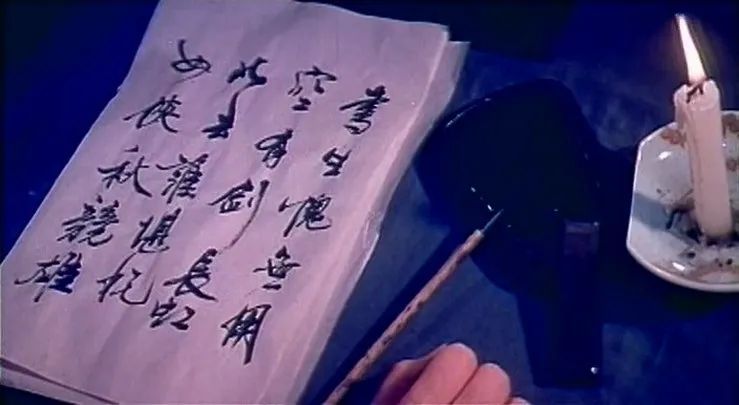 書生愧無用
空有劍長虹
此去誰堪抗
女俠秋競雄